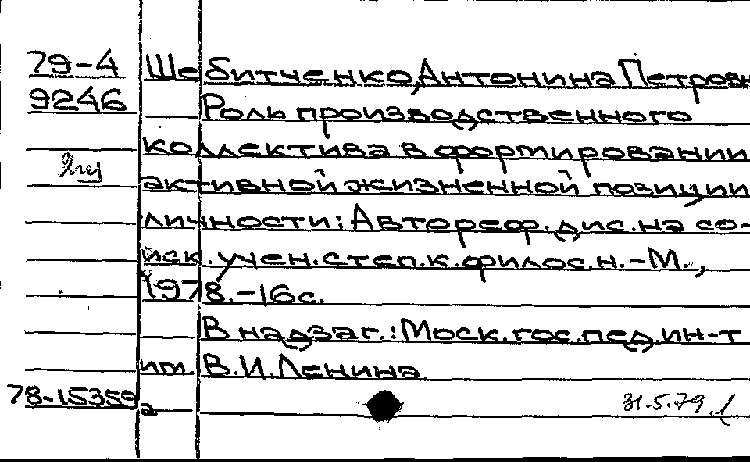 79-4 Шебитченко, Антонина Петровн
9246 Роль производственного
коллектива в формировании
активной жизненной позиции
личности: Автореф. дис. на со-
иск. учен. степ. к. филос. н. -М.,
1978. -16с.
В надзаг.: Моск. гос. пед. ин-т
им. В.И. Ленина
78-15359а
31.5.79